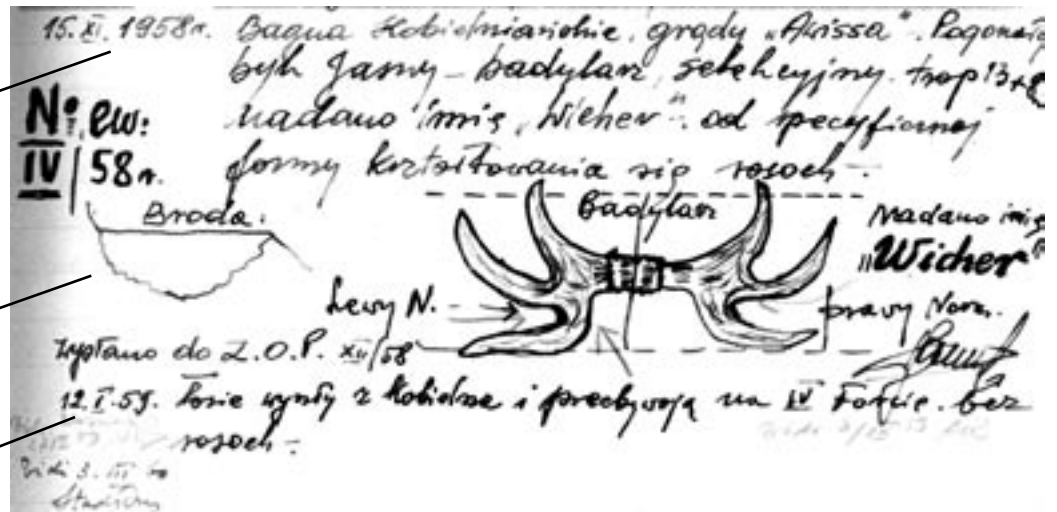 15. XI. 1958r. Bagna Kobielniarskie, grądy „Arissa". Pogonił
byk Jasny - badylarz, selekcyjny. trop 13
Nr. ew: nadano imię „Wicher" od specyficznej
IV/58r. formy kształtowania się rosoch -
Broda.
badylarz
Nadano imię
„Wicher"
Lewy N.
prawy Norm.
wysłano do L.O.P. XII/58
12.I.59. Łosie wyszły z Kobielna i przebywają na IV Forcie. bez
rosoch -
Vidi 3. III 60